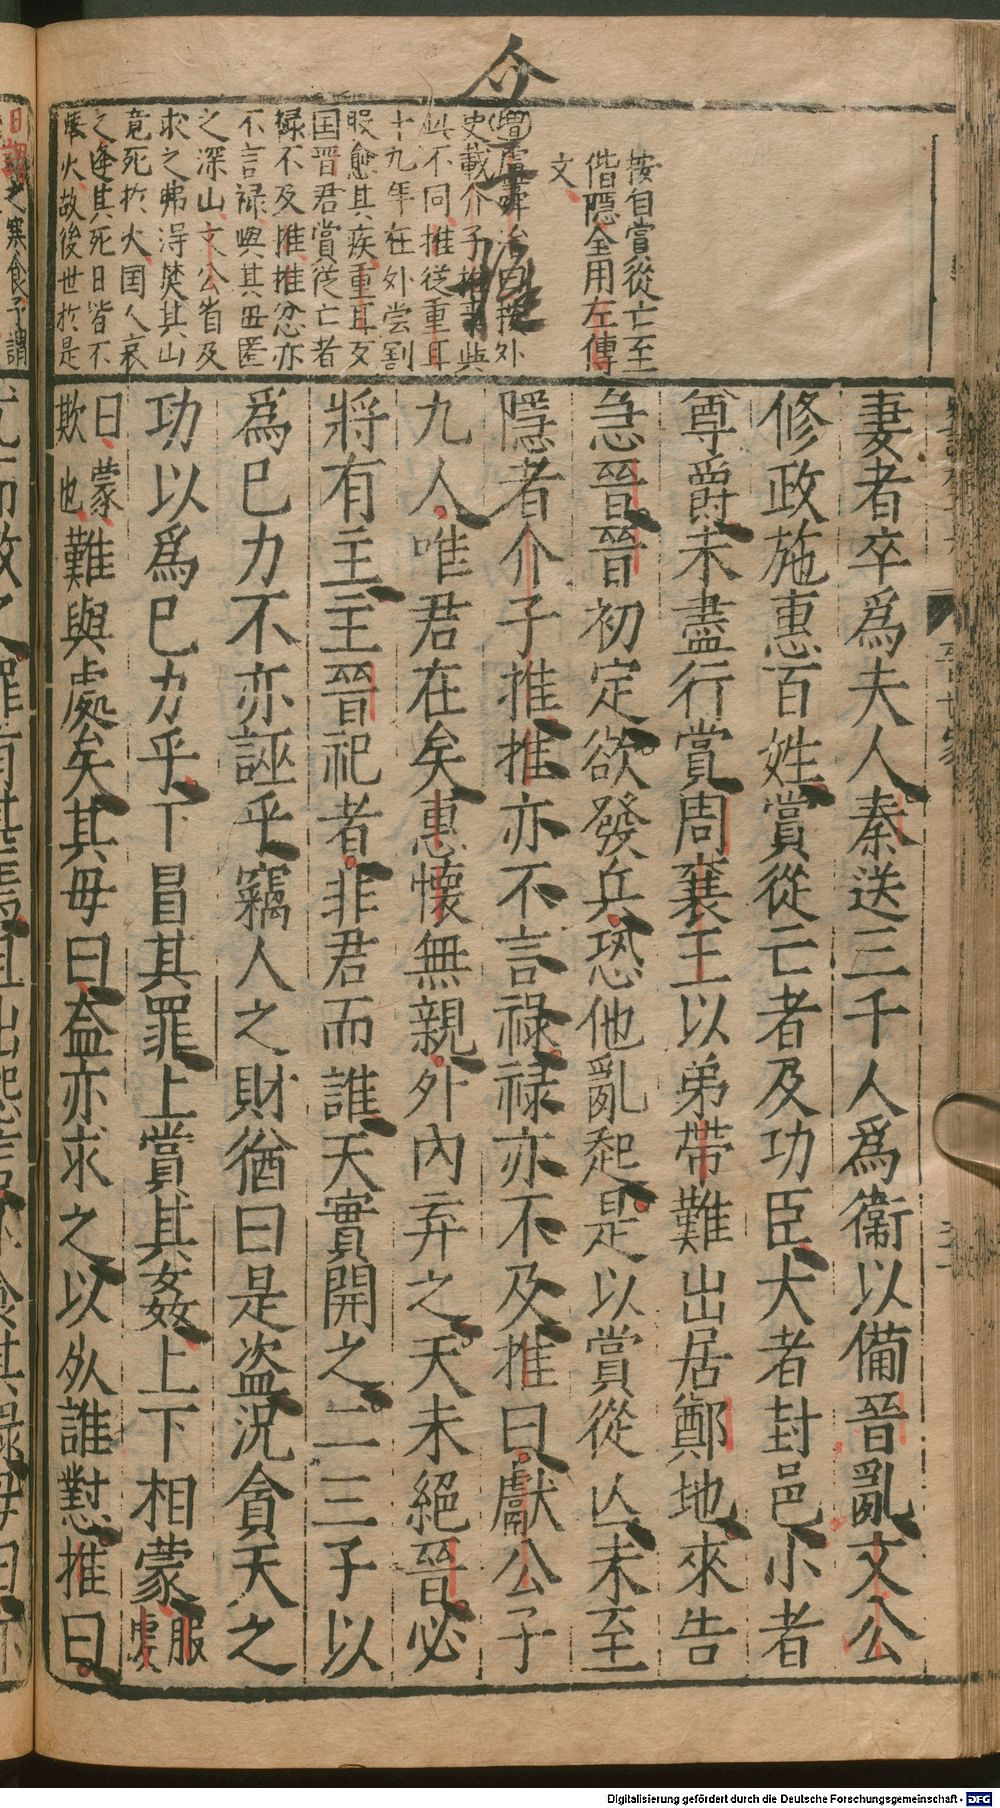 介子推
按自賞從亡至
偕隱全用左傳
文
史載介子推事與
此不同推從重耳
十九年在外嘗割
股愈其疾重耳反
国晋君賞従亡者
禄不及推推忿亦
不言禄與其母匿
之深山文公省及
求之弗淂焚其山
竟死於火国人哀
之逢其死日皆不
擧火故後世於是
妻者卒爲夫人秦送三千人爲衞以備晉亂文公
修政施惠百姓賞從亡者及功臣大者封邑小者
尊爵未盡行賞周襄王以弟帶難出居鄭地來告
急晉晉初定欲發兵恐他亂起是以賞從亡未至
隱者介子推推亦不言祿祿亦不及推曰獻公子
九人唯君在矣惠懷無親外內弃之天未絕晉必
將有主主晉祀者非君而誰天實開之二三子以
爲巳力不亦誣乎竊人之財猶曰是盗況貪天之
功以爲巳力乎下冒其罪上賞其姦上下相蒙服虔
曰蒙欺也難與處矣其毋曰盍亦求之以死誰懟推曰
日謂之寒食予謂
Digitalisierung gefördert durch die Deutsche Forschungsgemeinschaft - DFG